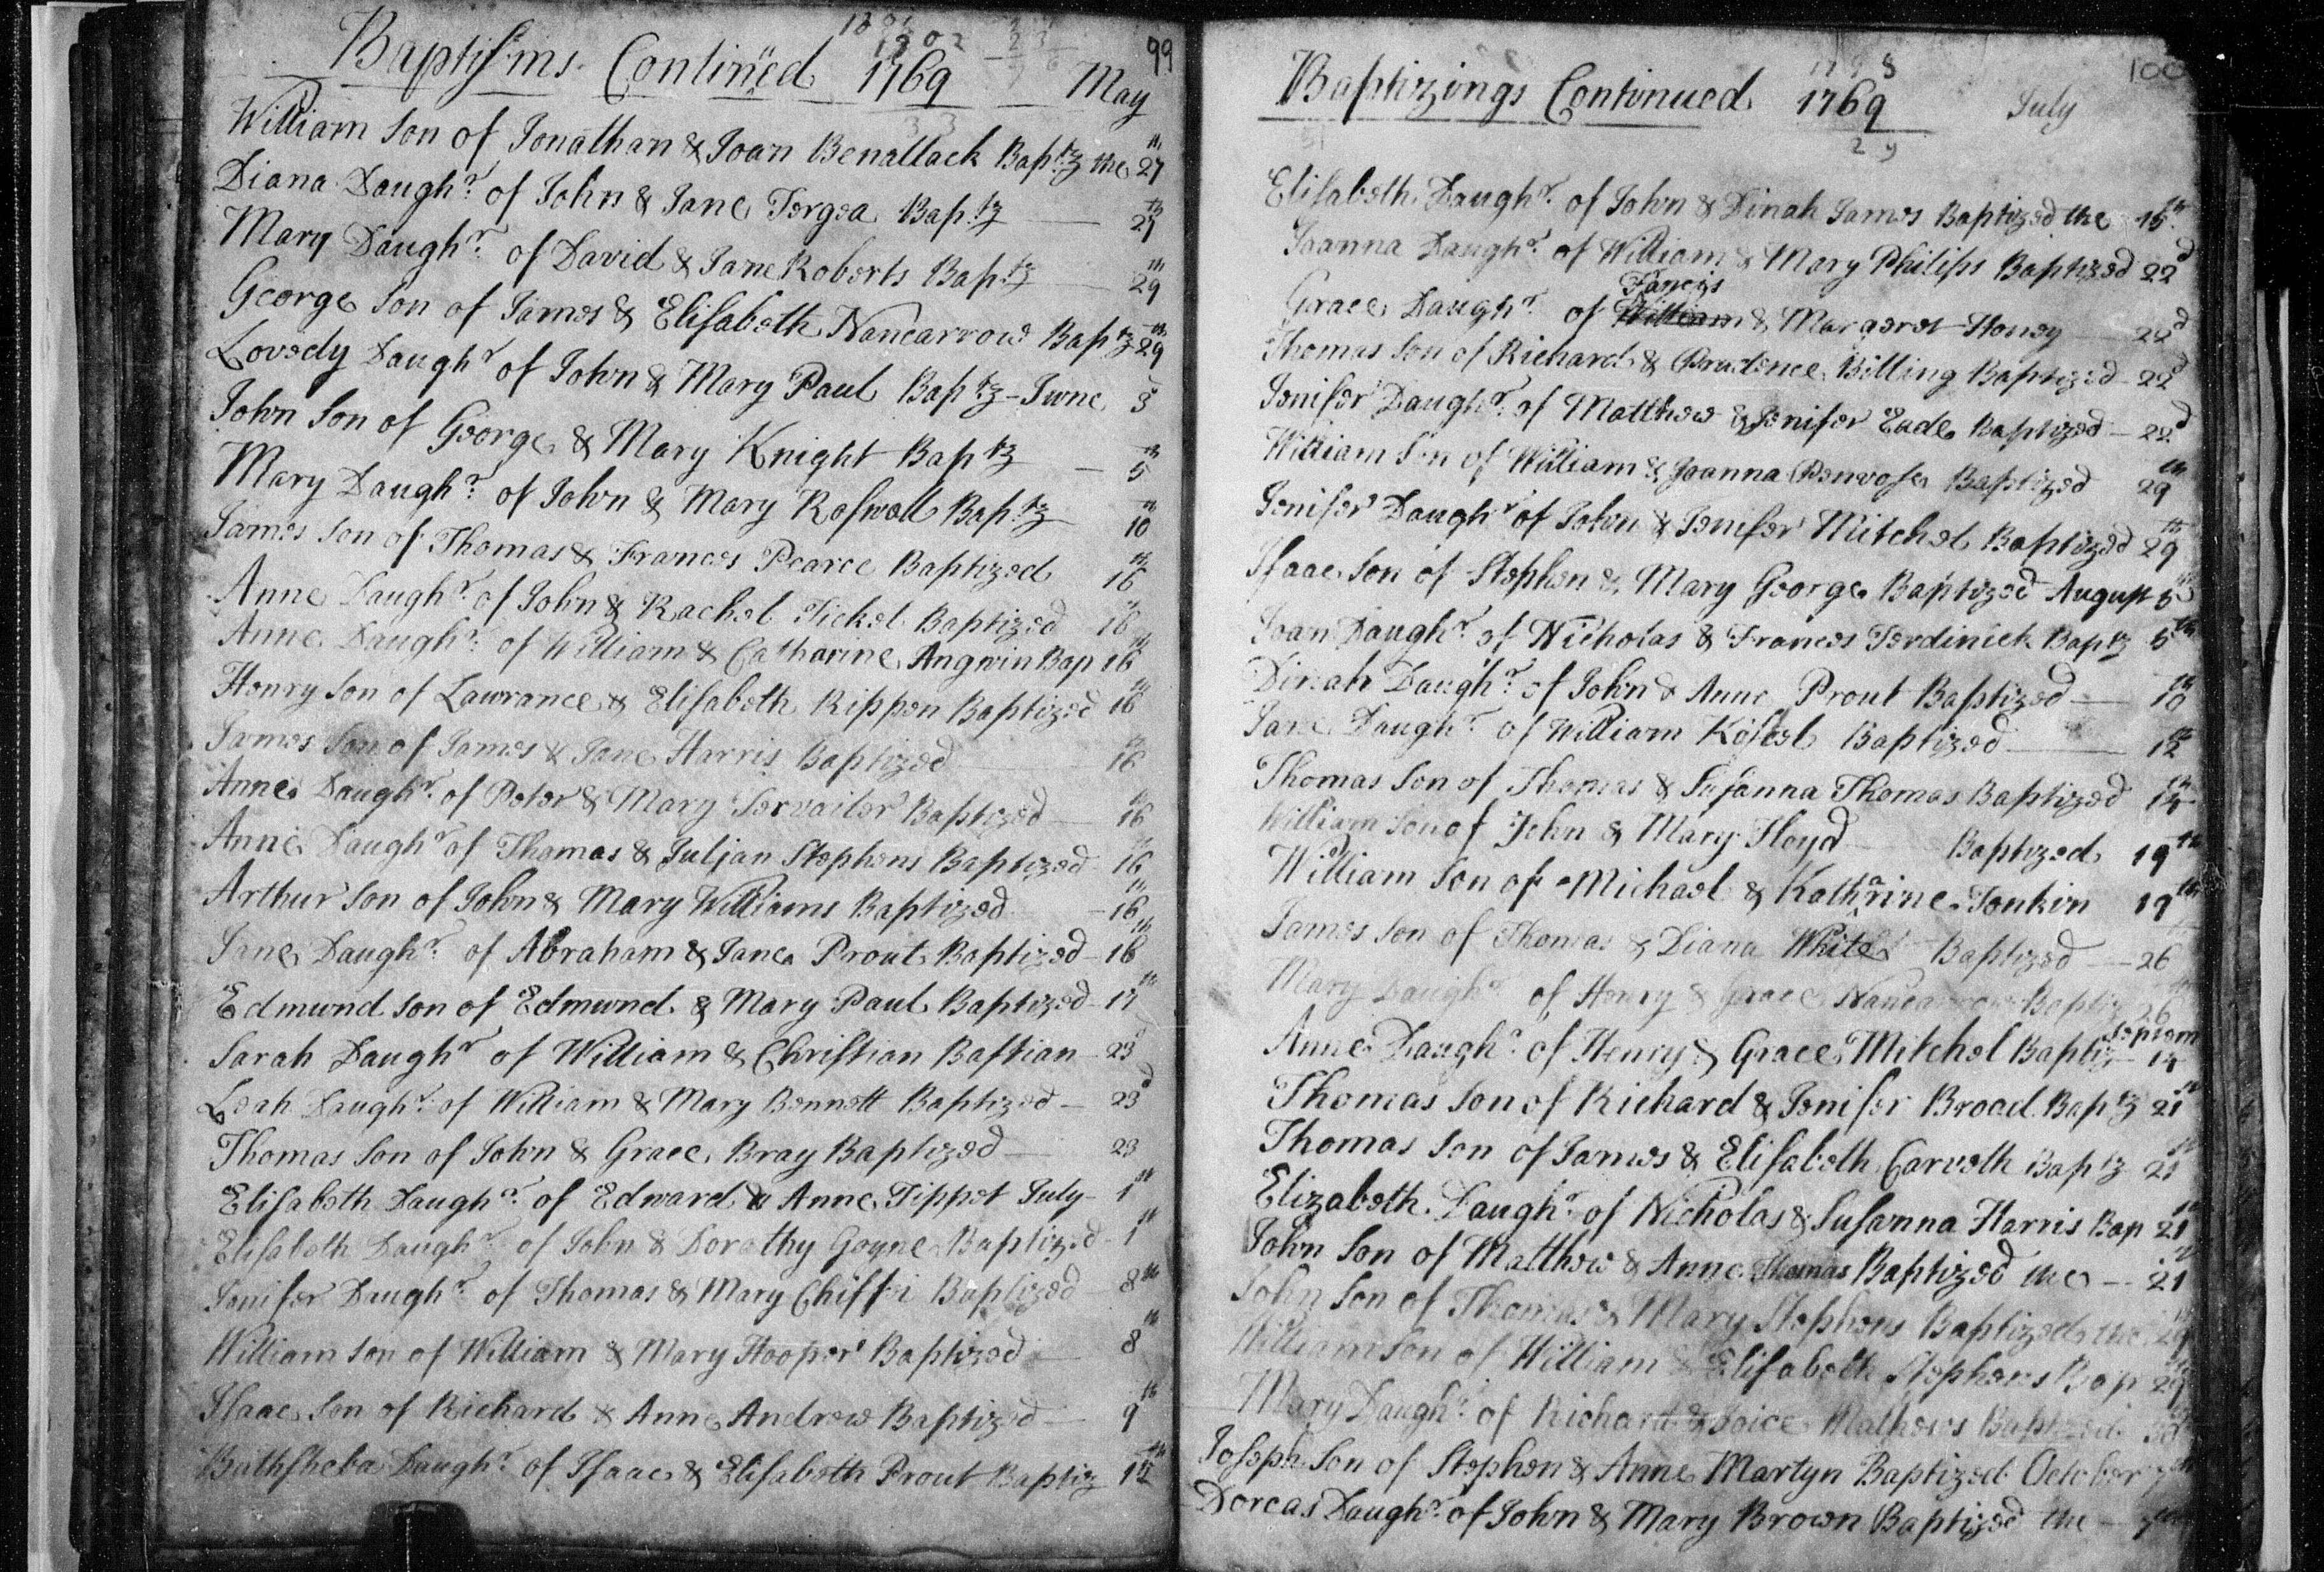 99
Baptisms Continued 1769 May
William Son of Jonathan & Joan Benallack Baptz the 27th
Diana Daughr. of John & Jane Tergea Baptz 27th
Mary Daughr. of David & Jane Roberts Baptz 29th
George Son of James & Elisabeth Nancarrow Baptz 29th
Lovedy Daughr of John & Mary Paul Baptz - June 3d
John Son of George & Mary Knight Baptz - 5th
Mary Daughr. of John & Mary Roswall Baptz 10th
James Son of Thomas & Frances Pearce Baptized 16th
Anne Daughr. of John & Rachel Tickel Baptized 16th
Anne Daughr. of William & Catharine Angwin Bap 16th
Henry Son of Lawrance & Elisabeth Rippen Baptized 16th
James Son of James & Jane Harris Baptized 16th
Anne Daughr. of Peter & Mary Tervailer Baptized 16th
Anne Daughr of Thomas & Julian Stephens Baptized 16th
Arthur Son of John & Mary Williams Baptized - 16th
Jane Daughr. of Abraham & Jane Prout Baptized - 16th
Edmund Son of Edmund & Mary Paul Baptized - 17th
Sarah Daughr of William & Christian Bastian - 23
Leah Daughr. of William & Mary Bennett Baptized - 23d
Thomas Son of John & Grace Bray Baptized - 23
Elisabeth Daughr. of Edward & Anne Tippet July - 1st
Elisabeth Daughr. of John & Dorothy Goyne Baptized - 1st
Jenifer Daughr. of Thomas & Mary Baptized 8th
William Son of William & Mary Hooper Baptized - 8th
Isaac Son of Richard & Anne Andrew Baptized - 9th
Bathsheba Daughr. of Isaac & Elisabeth Prout Baptiz 12th
100
Baptizings Continued 1769 July
Elisabeth Daughr. of John & Dinah James Baptized the 15th
Joanna Daughr. of William & Mary Philips Baptized 22d
Fancis
Grace Daughr. of William & Margeret Honey 22d
Thomas Son of Richard & Prudence Billing Baptized - 22d
Jenifer Daughr. of Matthew & Jenifer Eade Baptized - 22d
William Son of William & Joanna Penrose Baptized 29th
Jenifer Daughr of John & Jenifer Mitchel Baptized 29th
Isaac Son of Stephen & Mary George Baptized August 5th
Joan Daughr. of Nicholas & Frances Terdinick Baptz 5th
Dinah Daughr. of John & Anne Prout Baptized - 10th
Jane Daughr. of William Baptized 12th
Thomas Son of Thomas & Susanna Thomas Baptized 15th
William Son of John & Mary Floyd Baptized 19th
William Son of Michael & Katharine Tonkin 19th
James Son of Thomas & Diana White Baptized - 26th
Mary Daughr. of Henry & Grace Nancarrow Baptiz 26
Septem
Anne Daughr. of Henry & Grace Mitchel Baptiz 14
Thomas Son of Richard & Jenifer Broad Baptz 21st
Thomas Son of James & Elisabeth Carveth Baptz 21st
Elizabeth Daughr. of Nicholas & Susanna Harris Bap 21st
John Son of Matthew & Anne Thomas Baptized the - 21st
John Son of Thomas & Mary Stephens Baptized the 29
William Son of William & Elisabeth Stephens Bap 29
Mary Daughr. of Richard & Joice Mathews Baptized
Joseph Son of Stephen & Anne Martyn Baptized October 7th
Dorcas Daughr. of John & Mary Brown Baptized the - 7th